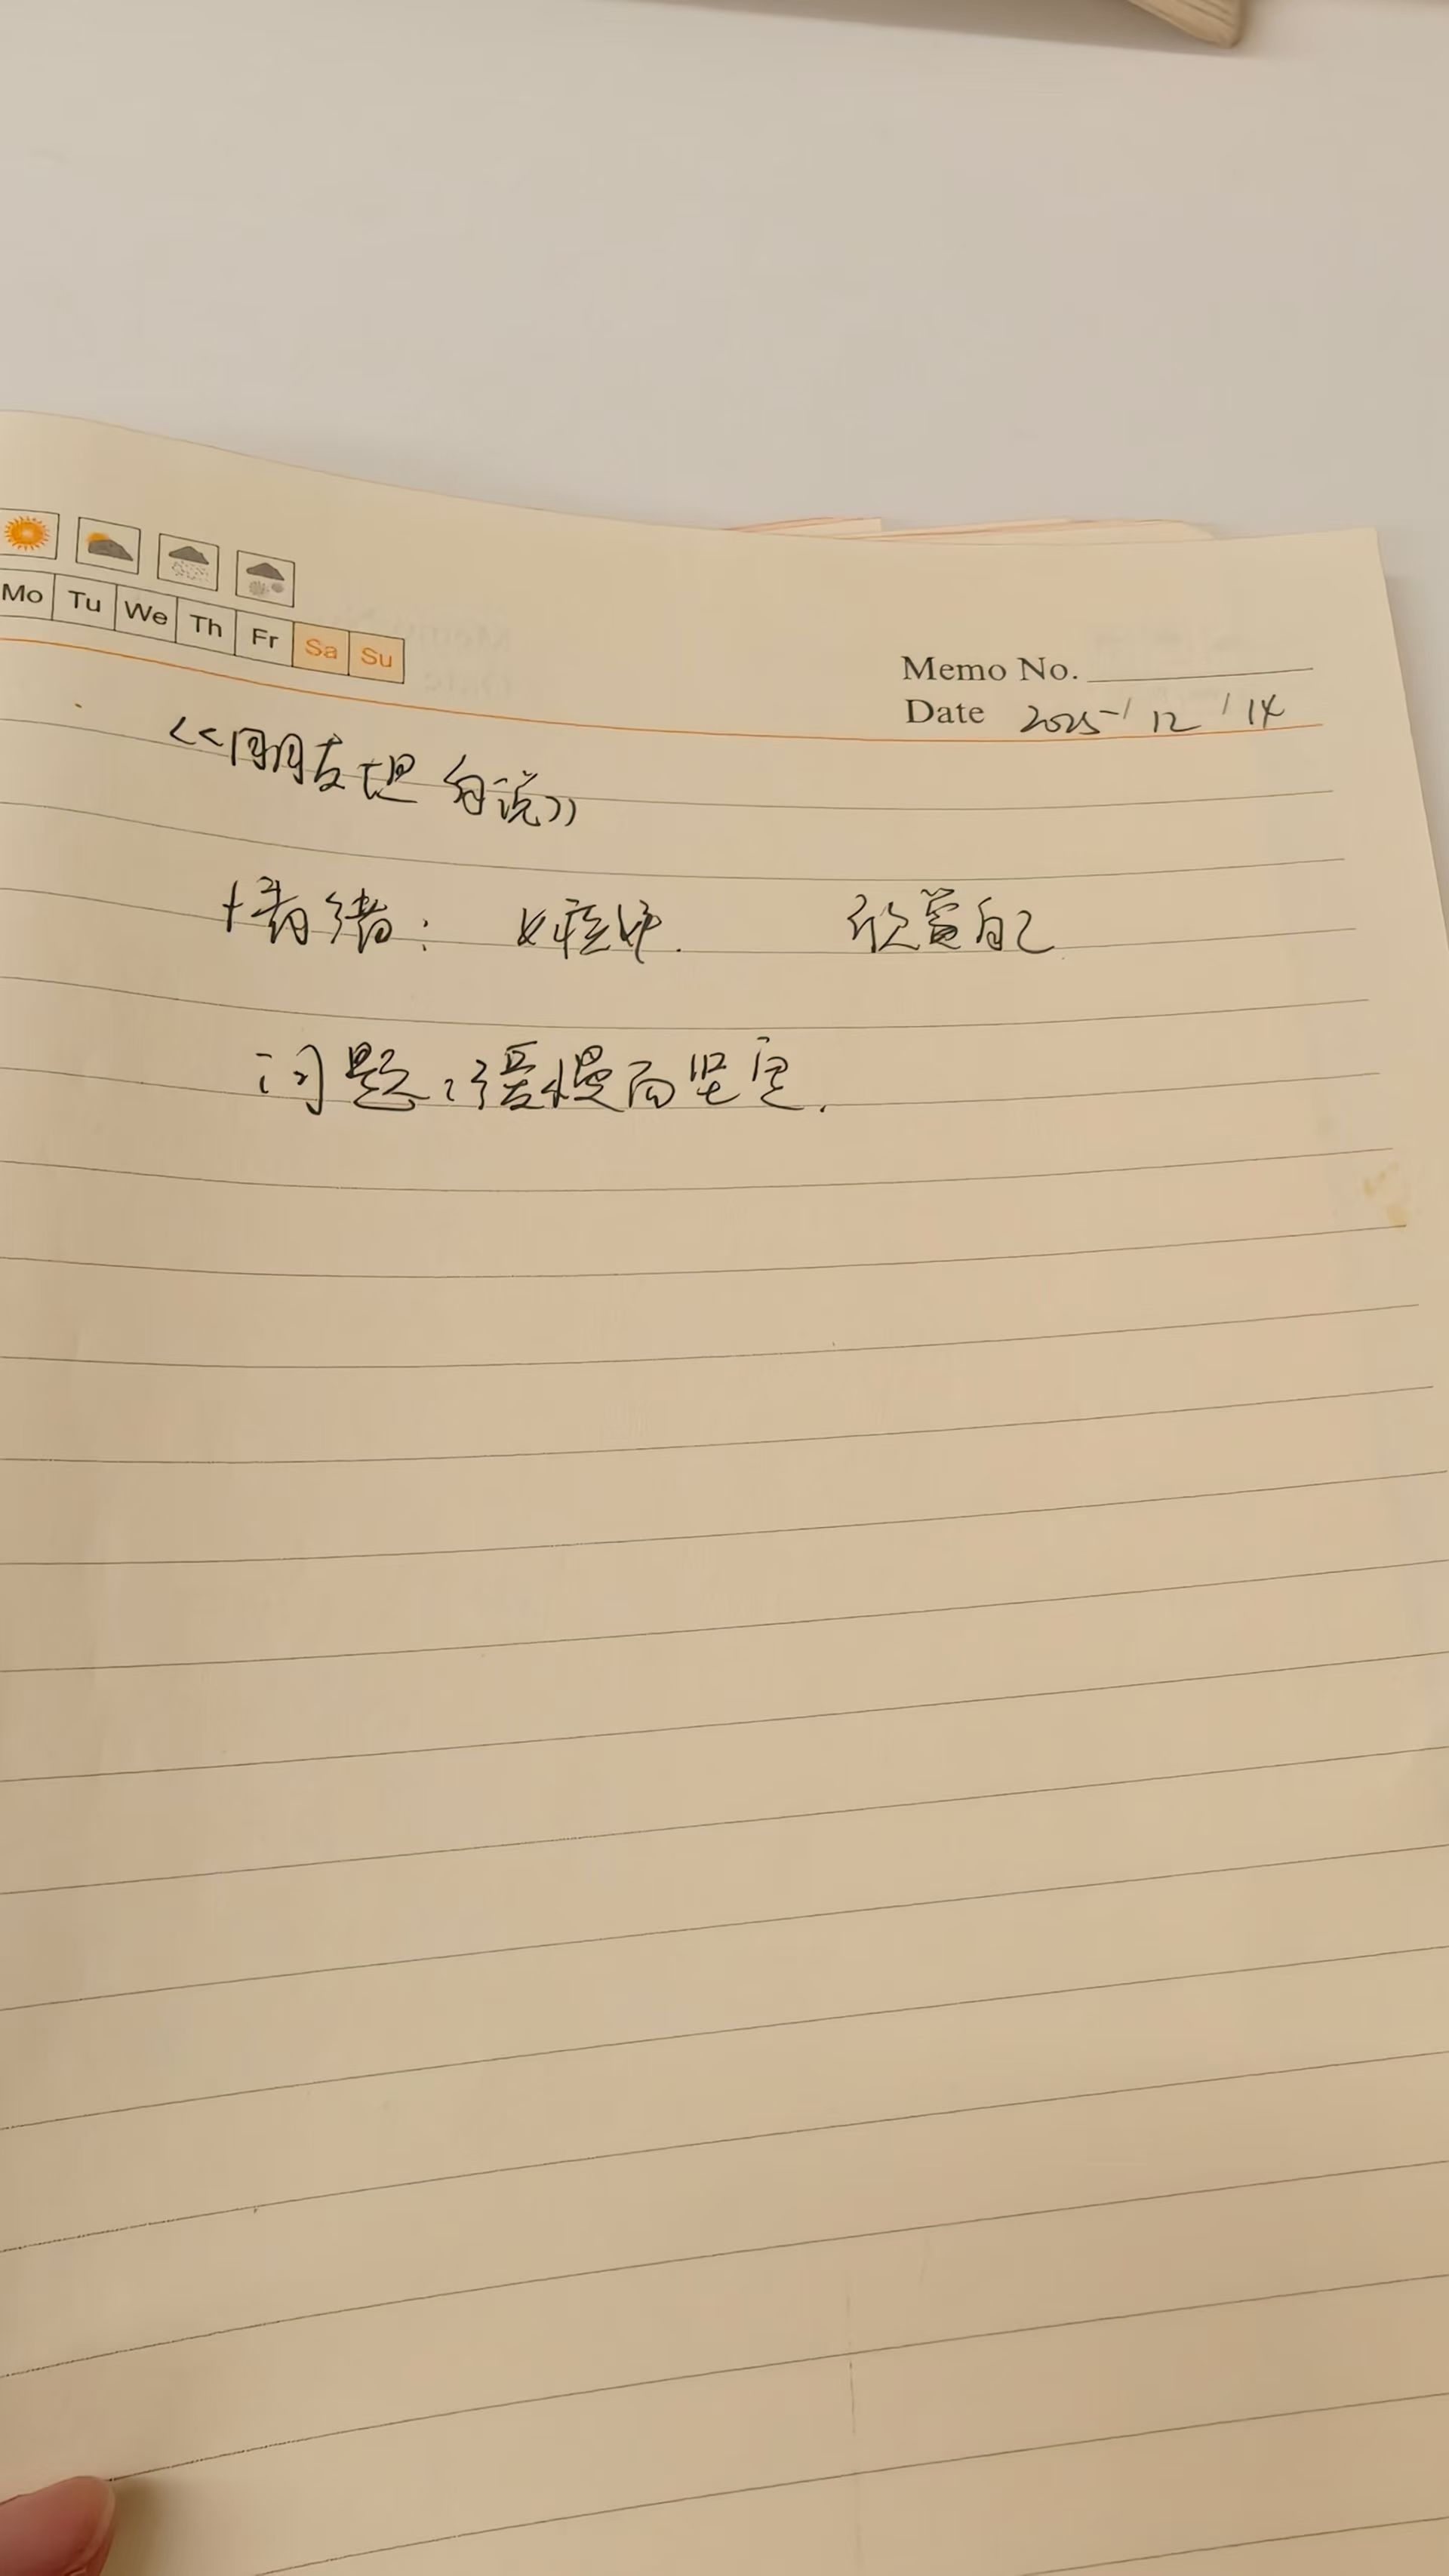 Mo Tu We Th Fr Sa Su
Memo No.
Date 2025/12/14
<<朋友想 自说>>
情绪： 嫉妒. 欣赏自己.
问题：缓慢而坚定.